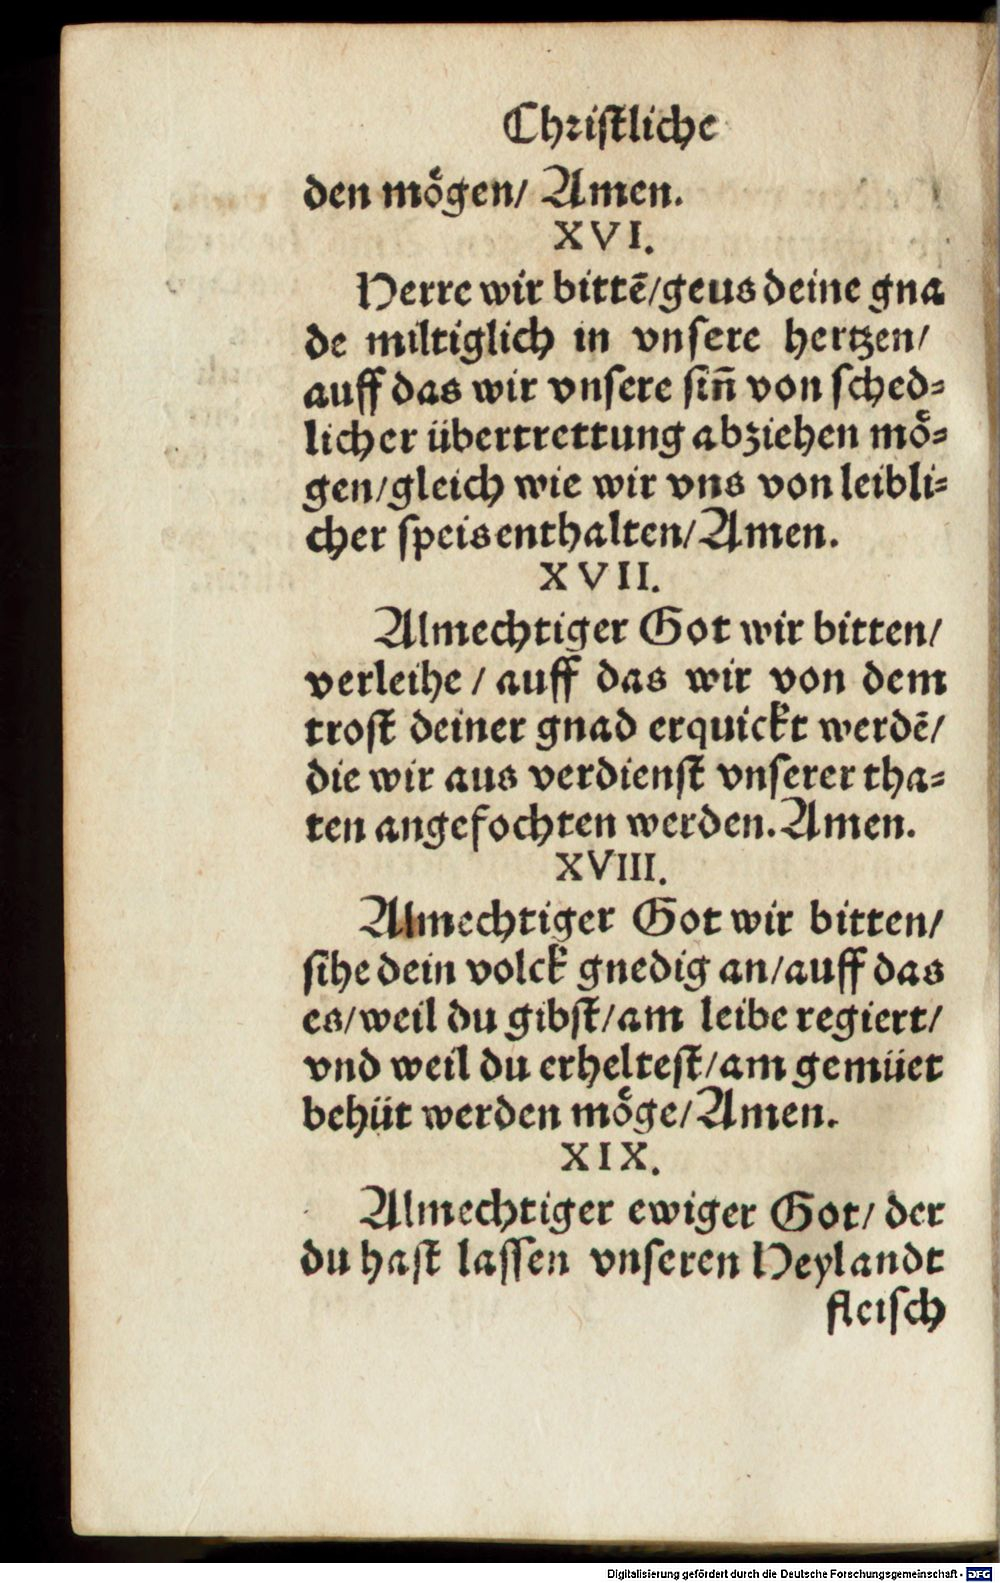 Chriſtliche
den moͤgen/ Amen.
XVI.
Herre wir bittē/geus deine gna
de miltiglich in vnſere hertzen/
auff das wir vnſere ſin̄ von ſched⸗
licher übertrettung abziehen moͤ⸗
gen/gleich wie wir vns von leibli⸗
cher ſpeis enthalten/Amen.
XVII.
Almechtiger Got wir bitten/
verleihe / auff das wir von dem
troſt deiner gnad erquickt werdē/
die wir aus verdienſt vnſerer tha⸗
ten angefochten werden. Amen.
XVIII.
Almechtiger Got wir bitten/
ſihe dein volck gnedig an/auff das
es/weil du gibſt/am leibe regiert/
vnd weil du erhelteſt/am gemüet
behüt werden moͤge/Amen.
XIX.
Almechtiger ewiger Got/ der
du haſt laſſen vnſeren Heylandt
fleiſch
Digitalisierung gefördert durch die Deutsche Forschungsgemeinschaft - DFG